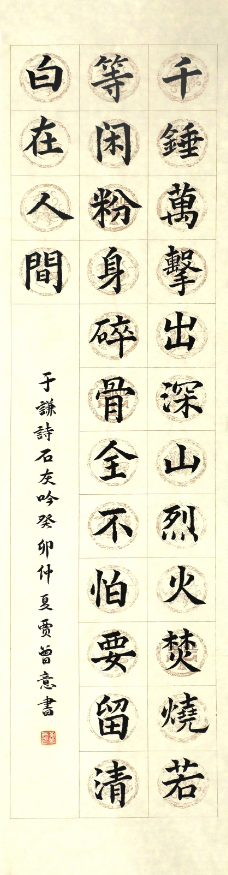 千錘萬擊出深山烈火焚燒若
等闲粉身碎骨全不怕要留清
白在人間
于謙詩石灰吟癸卯仲夏賈曾意書